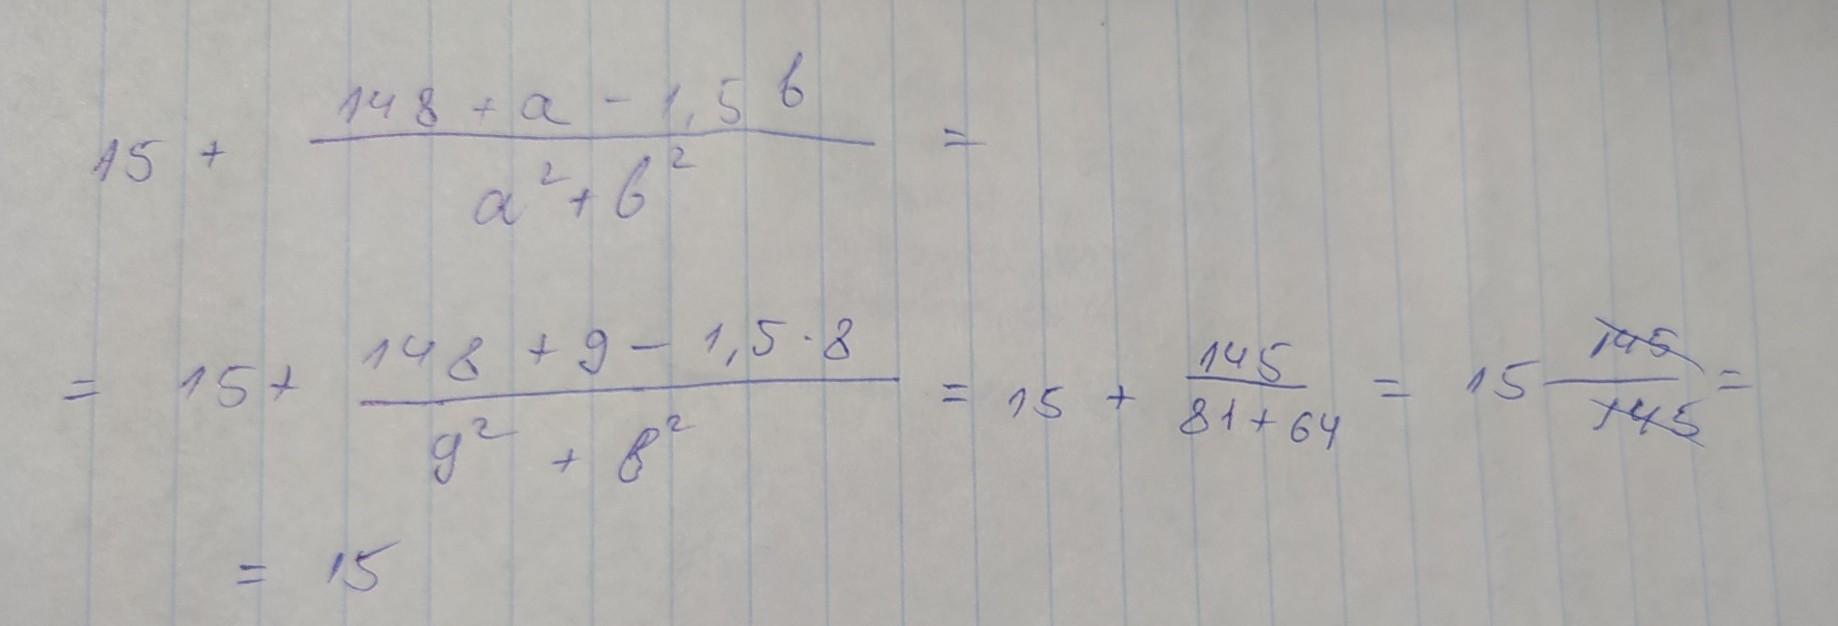 15 + (148 + a - 1,5 b) / (a² + b²) =
= 15 + (148 + 9 - 1,5 · 8) / (9² + 8²) = 15 + 145 / (81 + 64) = 15 145/145 =
= 15